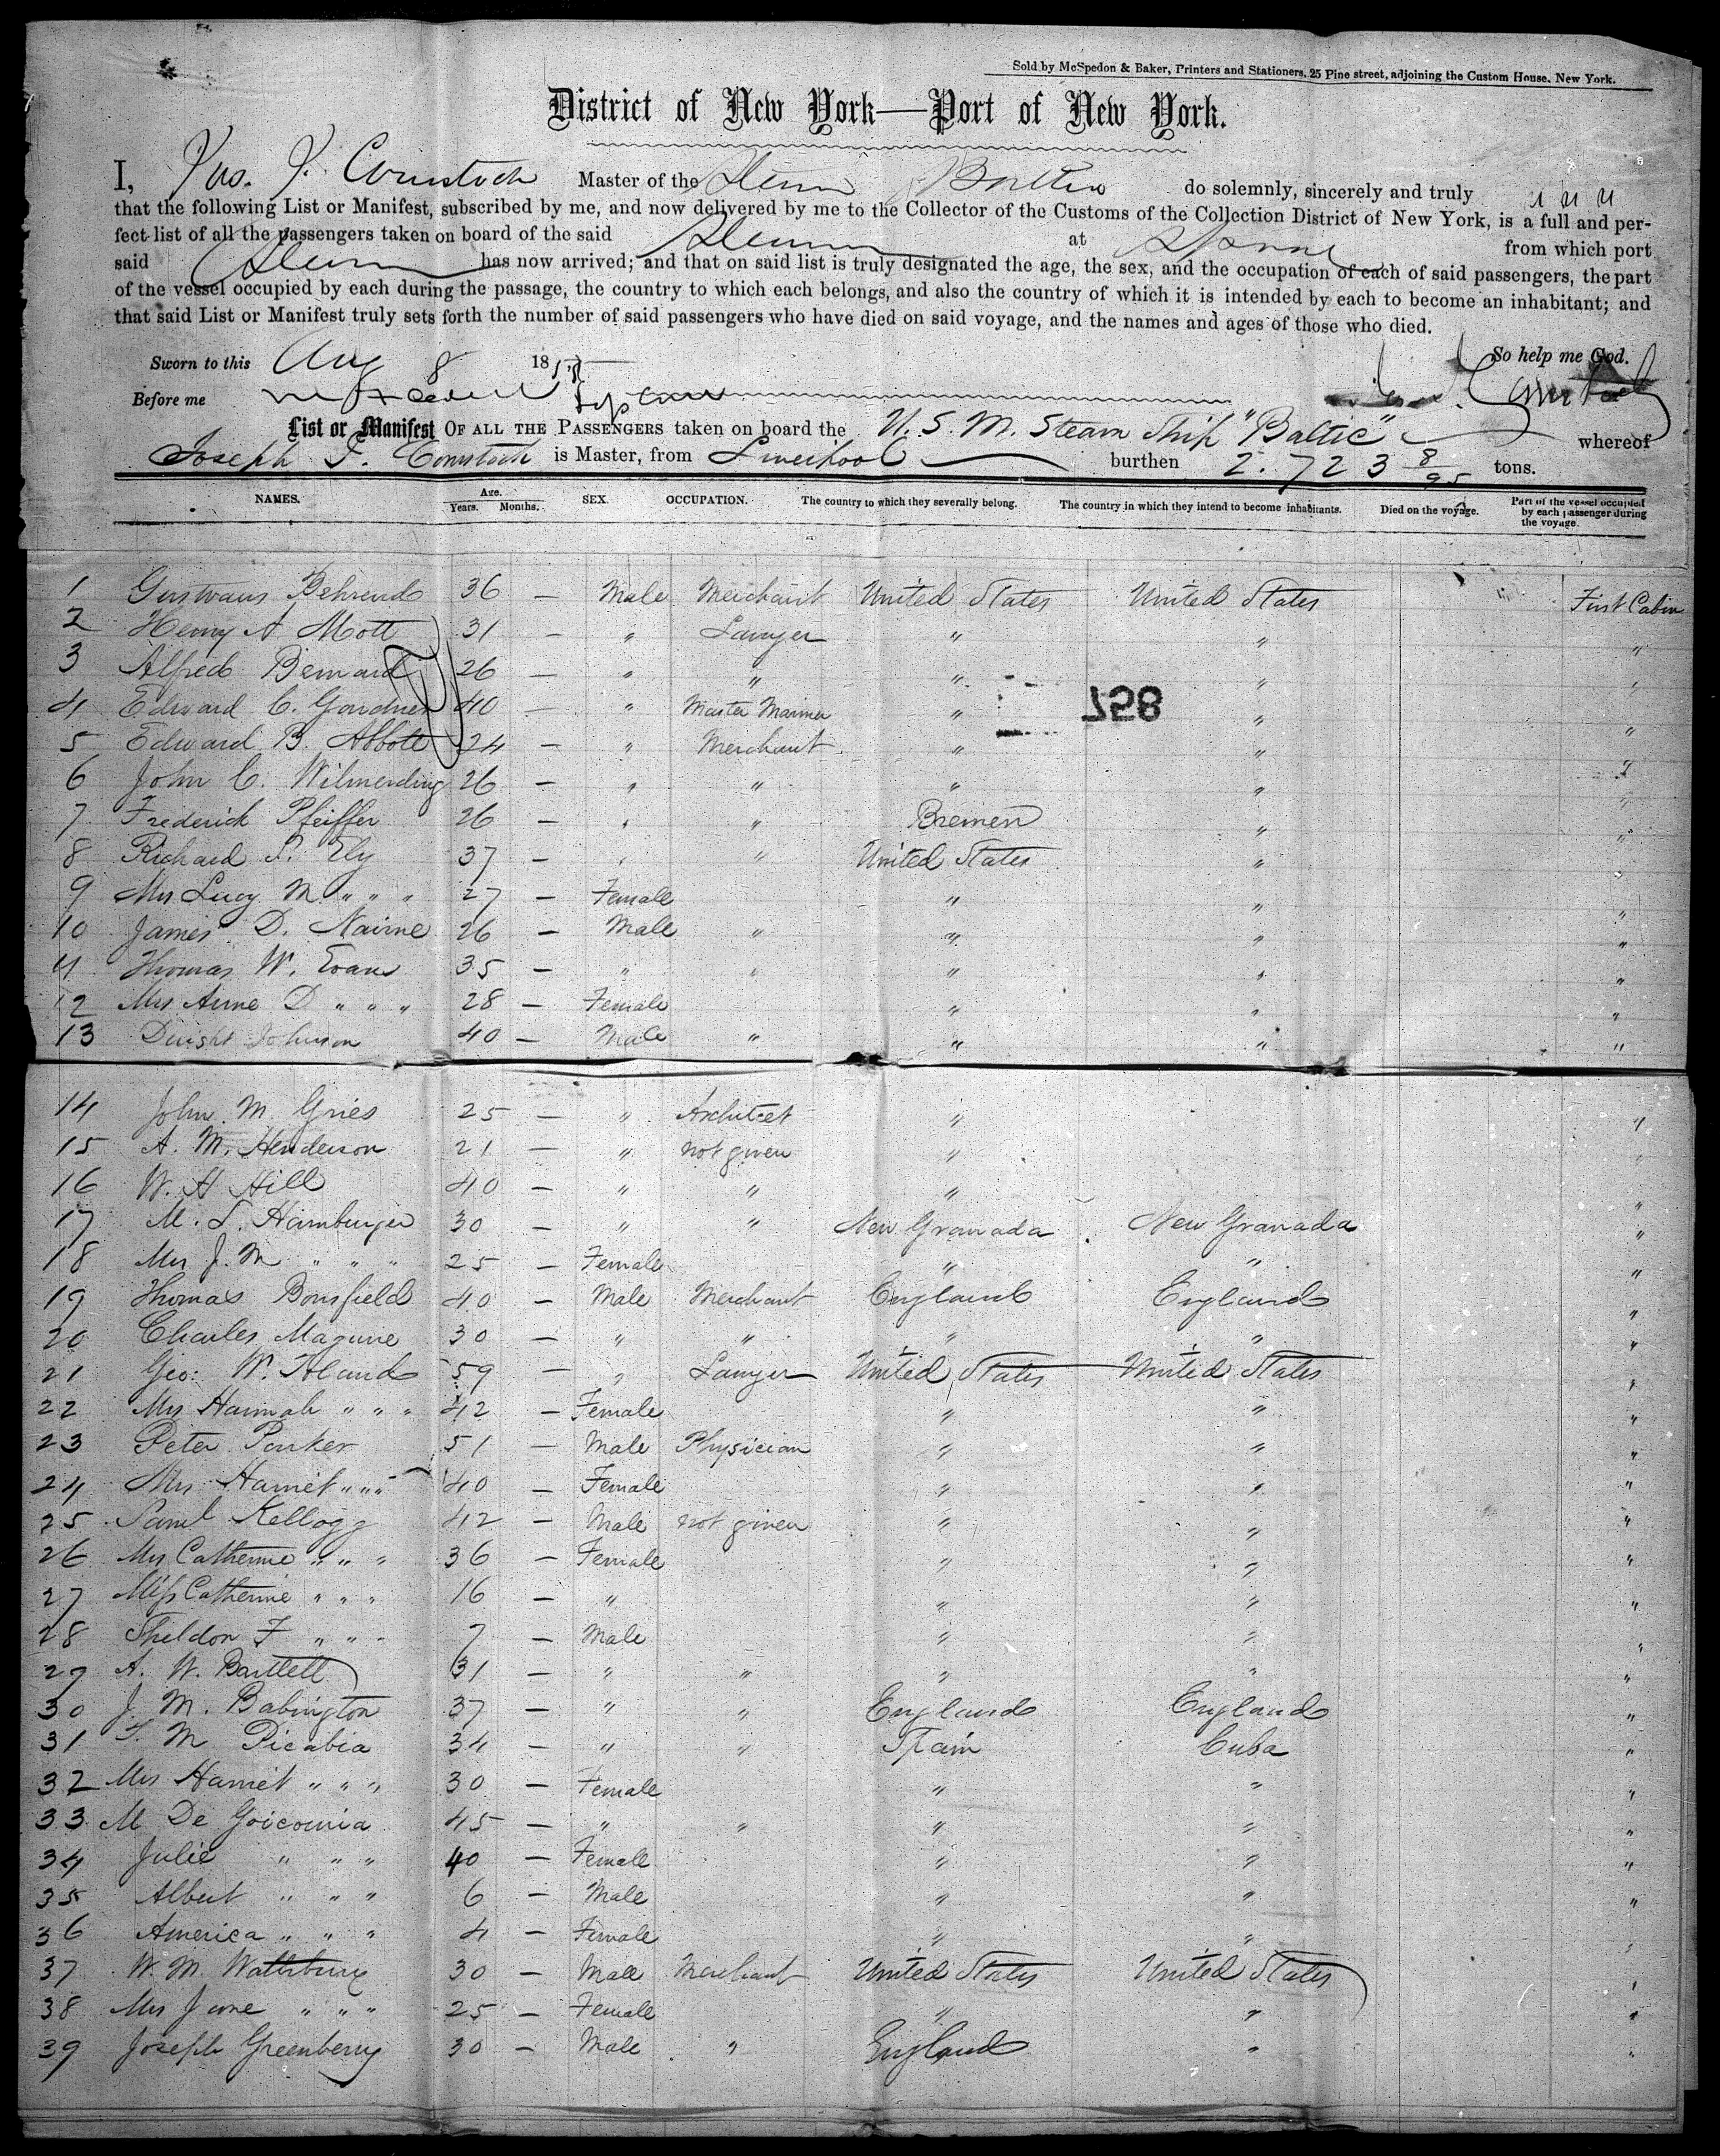 Sold by McSpedon & Baker, Printers and Stationers, 25 Pine street, adjoining the Custom House, New York.
District of New York—Port of New York.
I, Jos. J. Comstock Master of the Steamer Baltic do solemnly, sincerely and truly
that the following List or Manifest, subscribed by me, and now delivered by me to the Collector of the Customs of the Collection District of New York, is a full and per-
fect list of all the passengers taken on board of the said Steamer at from which port
said Steamer has now arrived; and that on said list is truly designated the age, the sex, and the occupation of each of said passengers, the part
of the vessel occupied by each during the passage, the country to which each belongs, and also the country of which it is intended by each to become an inhabitant; and
that said List or Manifest truly sets forth the number of said passengers who have died on said voyage, and the names and ages of those who died.
Sworn to this Aug 8 1855 So help me God.
Before me
List or Manifest OF ALL THE PASSENGERS taken on board the U.S.M. Steam Ship "Baltic" whereof
Joseph J. Comstock is Master, from Liverpool burthen 2.723 8/95 tons.
NAMES. Age. Years. Months. SEX. OCCUPATION. The country to which they severally belong. The country in which they intend to become inhabitants. Died on the voyage. Part of the vessel occupied by each passenger during the voyage.
1 Gustvaus Behrend 36 — Male Merchant United States United States First Cabin
2 Henry A Mott 31 — " Lawyer " " "
3 Alfred Bernard 26 — " " " " "
4 Edward C. Gardner 40 — " Master Mariner " " "
758
5 Edward B. Abbott 24 — " Merchant " " "
6 John C. Wilmerding 26 — " " " " "
7 Frederich Pfeiffer 26 — " " Bremen " "
8 Richard S. Ely 37 — " " United States " "
9 Mrs Lucy M. " " " 27 — Female " " "
10 James D. Nairne 26 — Male " " " "
11 Thomas W. Evans 35 — " " " " "
12 Mrs Anne D " " " 28 — Female " " "
13 Dwight Johnson 40 — Male " " " "
14 John M Gries 25 — " Architect " "
15 A. M. Henderson 21 — " not given " "
16 W. H Hill 40 — " " " "
17 M. S. Hamburger 30 — " " New Granada New Granada "
18 Mrs J. M " " " 25 — Female " " "
19 Thomas Bousfield 40 — Male Merchant England England "
20 Charles Maguire 30 — " " " " "
21 Geo: W. Hand 59 — " Lawyer United States United States "
22 Mrs Hannah " " " 42 — Female " " "
23 Peter Parker 51 — Male Physician " " "
24 Mrs Harriet " " " 40 — Female " " "
25 Saml Kellogg 42 — Male not given " " "
26 Mrs Catherine " " " 36 — Female " " "
27 Miss Catherine " " " 16 — " " " "
28 Sheldon F " " " 7 — Male " " "
29 A. W. Bartlett 31 — " " " " "
30 J. M. Babington 37 — " " England England "
31 F. M Picabia 34 — " " Spain Cuba "
32 Mrs Harriet " " " 30 — Female " " "
33 M De Goicouria 45 — " " " " "
34 Julie " " " 40 — Female " " "
35 Albert " " " 6 — Male " " "
36 America " " " 4 — Female " " "
37 W. M. Watterbury 30 — Male Merchant United States United States "
38 Mrs Jane " " " 25 — Female " " "
39 Joseph Greenberry 30 — Male " England " "